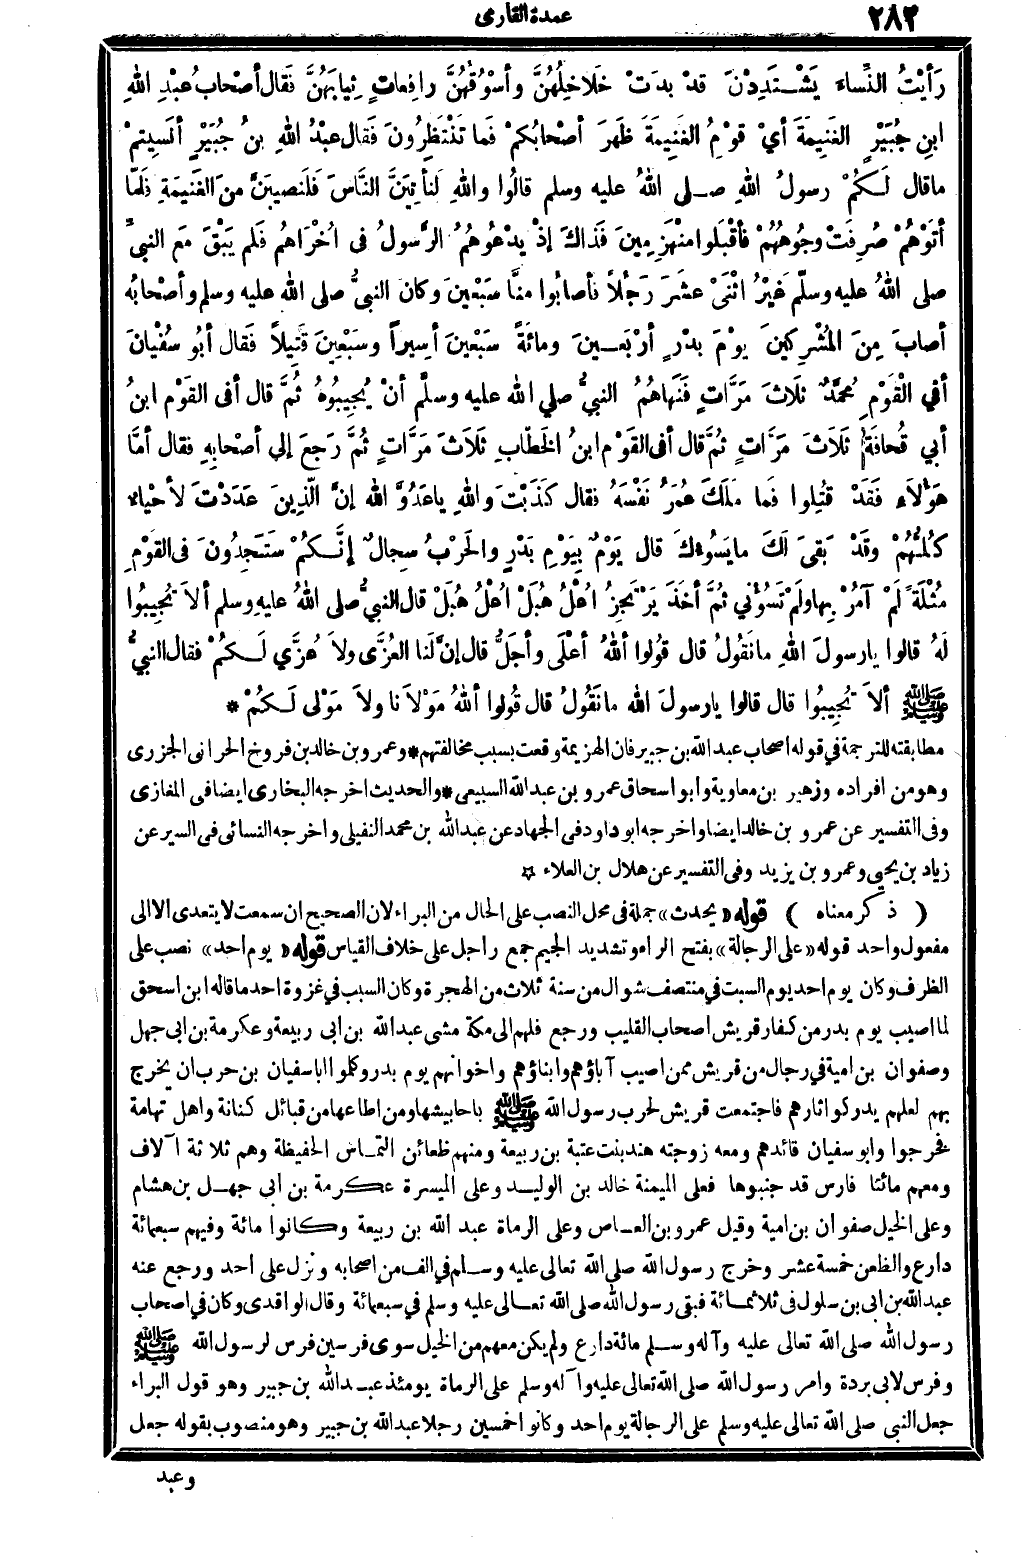 ٢٨٢
عمدة القارى
رَأَيْتُ النِّساءَ يَشْتَدِدْنَ قدْ بدَتْ خَلاَخِلُهُنَّ وأسْوُقُهُنَّ رافِعاتٍ ثِيابَهُنَّ فَقال أصْحابُ عبْدِ اللهِ
ابنِ جُبَيْرٍ الغَنِيمَةَ أىْ قوْمِ الغَنِيمَةَ ظَهَرَ أصْحابُكمْ فَما تَنْتَظِرُونَ فَقال عبْدُ اللهِ بنُ جُبَيْرٍ أنَسِيتمْ
ماقال لَكُمْ رسولُ اللهِ صلى اللهُ عليه وسلم قالُوا واللهِ لَنَأتِيَنَّ النَّاسَ فَلَنُصِيبَنَّ منَ الغَنِيمَةِ فَلَمَّا
أتَوْهُمْ صُرِفَتْ وجُوهُهُمْ فأقْبَلوا منْهَزِمِينَ فَذاكَ إذْ يدْعُوهُمُ الرَّسولُ فى اُخْرَاهُم فَلم يَبْقَ مَع النبىِّ
صلى اللهُ عليه وسلّم غَيْرُ اثْنَىْ عشَرَ رَجُلاً فأصابُوا منَّا سَبْعِينَ وكان النبىُّ صلى الله عليه وسلم وأصْحابُه
أصابَ مِنَ المُشْرِكِينَ يوْمَ بدْرٍ أرْبَعِينَ ومائَةً سَبْعِينَ أسِيراً وسَبْعِينَ قَتِيلاً فَقال أبُو سُفْيانَ
أفي الْقَوْمِ مُحمَّدٌ ثلاثَ مرَّاتٍ فَنَهاهُمُ النبىُّ صلي الله عليه وسلَّم أنْ يُجِيبُوهُ ثُمَّ قال أفى القَوْم ابنُ
أبي قُحافَةَ ثَلاَثَ مَرَّاتٍ ثمَّ قال أفى القَوْم ابنُ الخَطَّابِ ثَلاَثَ مَرَّاتٍ ثُمَّ رَجَعَ إلي أصْحابِهِ فقال أمَّا
هَؤُلاَءِ فَقَدْ قُتِلوا فَما مَلَكَ عُمَرُ نَفْسَهُ فقال كَذَبْتَ واللهِ ياعَدُوَّ الله إنَّ الَّذِينَ عَدَدْتَ لأحْياءٌ
كُلُّهُمْ وقَدْ بَقىَ لَكَ مايَسُوءُكَ قال يَوْمٌ بِيَوْمِ بَدْرٍ والحَرْبُ سِجالٌ إنَّكُمْ سَتَجِدُونَ فى القَوْمِ
مُثْلَةً لَمْ آمُرْ بِها ولَمْ تَسُؤْنِي ثُمَّ أخَذَ يَرْتَجِزُ اُعْلُ هُبَلْ اُعْلُ هُبَلْ قال النبىُّ صلى اللهُ عليهِ وسلم ألاَ تُجِيبُوا
لَهُ قالوا يارسولَ اللهِ مانَقُولُ قال قُولُوا أللهُ أعْلَى وأجَلُّ قال إنَّ لَنا العُزَّى ولاَ عُزَّي لَكُمْ فقال النبىُّ
ﷺ ألاَ تُجِيبُوا قال قالوا يارسولَ الله مانَقُولُ قال قُولوا أللهُ مَوْلاَنا ولاَ مَوْلى لَكُمْ *
مطابقته للترجمة في قوله اصحاب عبد الله بن جبير فان الهزيمة وقعت بسبب مخالفتهم * وعمرو بن خالد بن فروخ الحرانى الجزرى
وهو من افراده وزهير بن معاوية وابو اسحاق عمرو بن عبد الله السبيعى * والحديث اخرجه البخارى ايضا فى المغازى
وفى التفسير عن عمرو بن خالد ايضا واخرجه ابو داود فى الجهاد عن عبد الله بن محمد النفيلى واخرجه النسائى فى السير عن
زياد بن يحيى وعمرو بن يزيد وفى التفسير عن هلال بن العلاء *
( ذكر معناه ) قوله «يحدث» جملة فى محل النصب على الحال من البراء لان الصحيح ان سمعت لا يتعدى الا الى
مفعول واحد قوله «على الرجالة» بفتح الراء وتشديد الجيم جمع راجل على خلاف القياس قوله «يوم احد» نصب على
الظرف وكان يوم احد يوم السبت في منتصف شوال من سنة ثلاث من الهجرة وكان السبب في غزوة احد ما قاله ابن اسحق
لما اصيب يوم بدر من كفار قريش اصحاب القليب ورجع فلهم الى مكة مشى عبد الله بن ابى ربيعة وعكرمة بن ابى جهل
وصفوان بن امية في رجال من قريش ممن اصيب آباؤهم وابناؤهم واخوانهم يوم بدر وكلموا ابا سفيان بن حرب ان يخرج
بهم لعلهم يدركوا ثارهم فاجتمعت قريش لحرب رسول الله ﷺ باحابيشها ومن اطاعها من قبائل كنانة واهل تهامة
فخرجوا وابو سفيان قائدهم ومعه زوجته هند بنت عتبة بن ربيعة ومنهم ظعائن التماس الحفيظة وهم ثلاثة آلاف
ومعهم مائتا فارس قد جنبوها فعلى الميمنة خالد بن الوليد وعلى الميسرة عكرمة بن ابي جهل بن هشام
وعلى الخيل صفوان بن امية وقيل عمرو بن العاص وعلى الرماة عبد الله بن ربيعة وكانوا مائة وفيهم سبعمائة
دارع والظعن خمسة عشر وخرج رسول الله صلى الله تعالى عليه وسلم في الف من اصحابه ونزل على احد ورجع عنه
عبد الله بن ابى بن سلول فى ثلاثمائة فبقى رسول الله صلى الله تعالى عليه وسلم في سبعمائة وقال الواقدى وكان في اصحاب
رسول الله صلى الله تعالى عليه وآله وسلم مائة دارع ولم يكن معهم من الخيل سوى فرسين فرس لرسول الله ﷺ
وفرس لابى بردة وامر رسول الله صلى الله تعالى عليه وآله وسلم على الرماة يومئذ عبد الله بن جبير وهو قول البراء
جعل النبى صلى الله تعالى عليه وسلم على الرجالة يوم احد وكانوا خمسين رجلا عبد الله بن جبير وهو منصوب بقوله جعل
وعبد